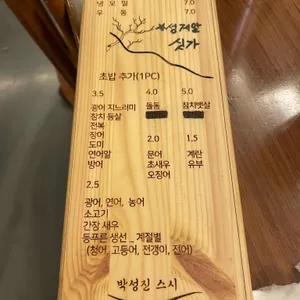 냉 모 밀 7.0
우 동 7.0
초밥 추가(1PC)
3.5 4.0 5.0
광어 지느러미 돌돔 참치뱃살
장치 등살
전복
장어 2.0 1.5
도미
연어알 문어 계란
방어 초새우 유부
오징어
2.5
광어, 연어, 농어
소고기
간장 새우
등푸른 생선 _ 계절별
(청어, 고등어, 전갱이, 전어)
박성진 스시